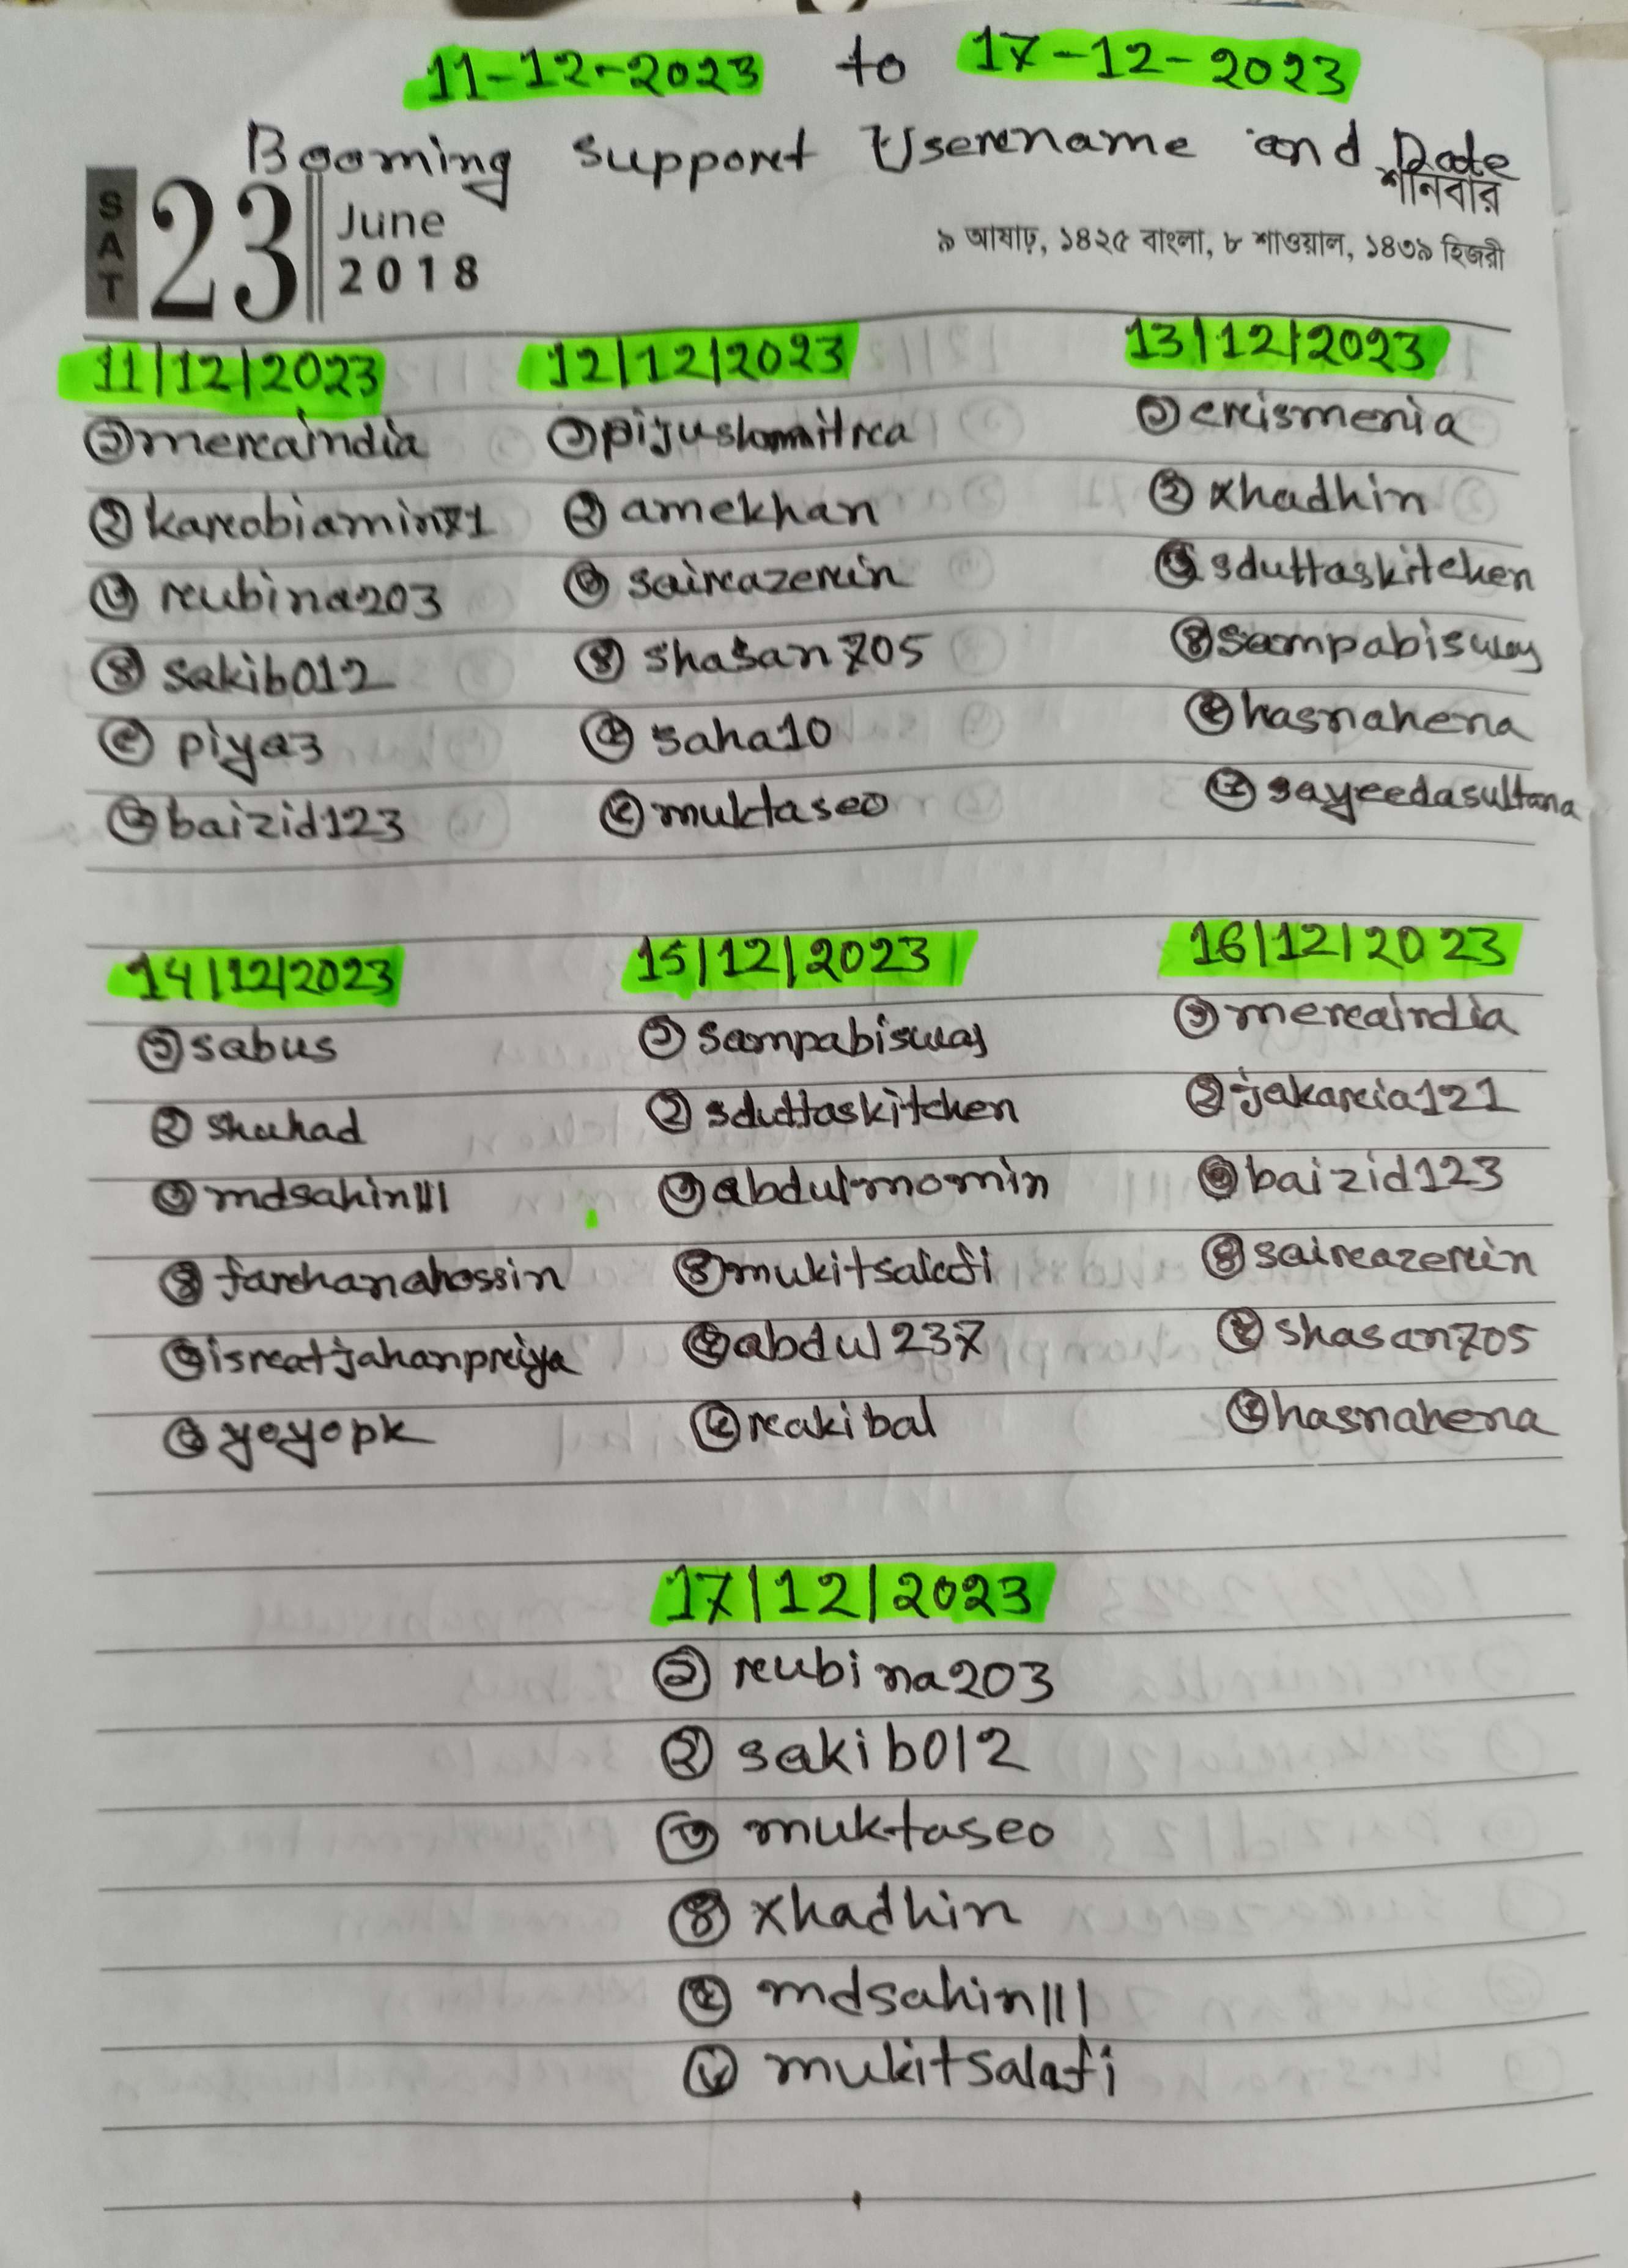 11-12-2023 to 17-12-2023
Booming support Username and Date
SAT 23 June 2018
শনিবার
৯ আষাঢ়, ১৪২৫ বাংলা, ৮ শাওয়াল, ১৪৩৯ হিজরী
11/12/2023
১ meraindia
২ karabiamin71
৩ rubina203
৪ sakib012
৫ piya3
৬ baizid123
12/12/2023
১ pijushmitra
২ amekhan
৩ sairazerin
৪ shasan705
৫ saha10
৬ muktaseo
13/12/2023
১ crismenia
২ xhadhin
৩ sduttaskitchen
৪ sampabiswas
৫ hasnahena
৬ sayeedasultana
14/12/2023
১ sabus
২ shuhad
৩ mdsahin111
৪ farhanahossin
৫ isratjahanpriya
৬ yoyopk
15/12/2023
১ sampabiswas
২ sduttaskitchen
৩ abdulmomin
৪ mukitsalafi
৫ abdul237
৬ rakibal
16/12/2023
১ meraindia
২ jakaria121
৩ baizid123
৪ sairazerin
৫ shasan705
৬ hasnahena
17/12/2023
১ rubina203
২ sakib012
৩ muktaseo
৪ xhadhin
৫ mdsahin111
৬ mukitsalafi